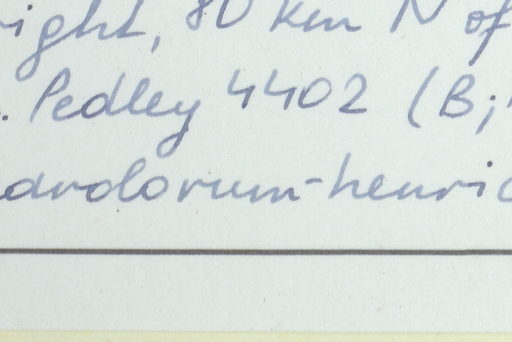 ight, 80 km N of
. Pedley 4402 (B;
arolorum-henric